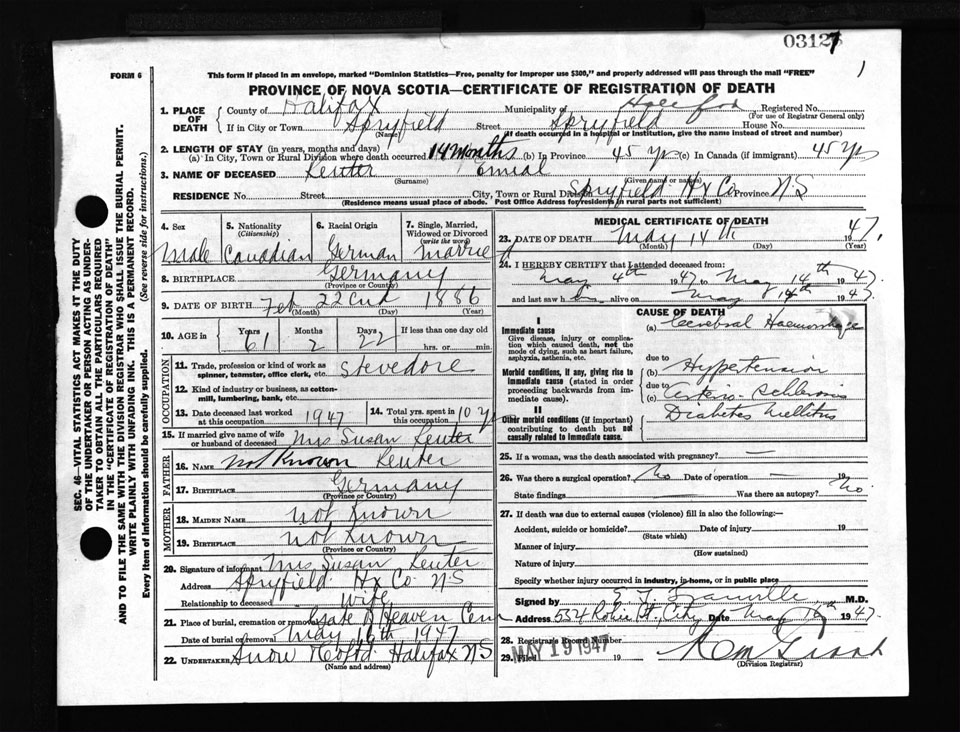 03127
1
FORM 6
This form if placed in an envelope, marked "Dominion Statistics—Free, penalty for improper use $300," and properly addressed will pass through the mail "FREE"
PROVINCE OF NOVA SCOTIA—CERTIFICATE OF REGISTRATION OF DEATH
SEC. 46—VITAL STATISTICS ACT MAKES IT THE DUTY
OF THE UNDERTAKER OR PERSON ACTING AS UNDER-
TAKER TO OBTAIN ALL THE PARTICULARS REQUIRED
IN THE "CERTIFICATE OF REGISTRATION OF DEATH"
AND TO FILE THE SAME WITH THE DIVISION REGISTRAR WHO SHALL ISSUE THE BURIAL PERMIT.
WRITE PLAINLY WITH UNFADING INK. THIS IS A PERMANENT RECORD.
Every item of information should be carefully supplied. (See reverse side for instructions.)
1. PLACE OF DEATH County of Halifax Municipality of Registered No.
(For use of Registrar General only)
If in City or Town Spryfield Street Spryfield House No.
(Name) (If death occurred in a hospital or institution, give the name instead of street and number)
2. LENGTH OF STAY (in years, months and days)
(a) In City, Town or Rural Division where death occurred 14 Months (b) In Province 45 yrs (c) In Canada (if immigrant) 45 yrs
3. NAME OF DECEASED Reuter
(Surname) (Given name or names)
RESIDENCE No. Street City, Town or Rural Division Spryfield Hx Co Province N S
(Residence means usual place of abode. Post Office Address for residents in rural parts not sufficient)
4. Sex Male
5. Nationality (Citizenship) Canadian
6. Racial Origin German
7. Single, Married, Widowed or Divorced (write the word) Married
8. BIRTHPLACE Germany
(Province or Country)
9. DATE OF BIRTH Feb 22nd 1886
(Month) (Day) (Year)
10. AGE in Years 61 Months 2 Days 22 If less than one day old hrs. or min.
OCCUPATION
11. Trade, profession or kind of work as spinner, teamster, office clerk, etc. Stevedore
12. Kind of industry or business, as cotton-mill, lumbering, bank, etc.
13. Date deceased last worked at this occupation 1947
14. Total yrs. spent in this occupation 10 yrs
15. If married give name of wife or husband of deceased Mrs Susan Reuter
FATHER
16. NAME Not Known Reuter
17. BIRTHPLACE Germany
(Province or Country)
MOTHER
18. MAIDEN NAME Not Known
19. BIRTHPLACE Not Known
(Province or Country)
20. Signature of informant Mrs Susan Reuter
Address Spryfield Hx Co N S
Relationship to deceased wife
21. Place of burial, cremation or removal Gate of Heaven Cem
Date of burial or removal May 16th 1947
22. UNDERTAKER Snow & Co Ltd Halifax N S
(Name and address)
MEDICAL CERTIFICATE OF DEATH
23. DATE OF DEATH May 14th 1947.
(Month) (Day) (Year)
24. I HEREBY CERTIFY that I attended deceased from:
May 4th 1947 to May 14th 1947.
and last saw h im alive on May 14th 1947.
CAUSE OF DEATH
I
Immediate cause
Give disease, injury or complication which caused death, not the mode of dying, such as heart failure, asphyxia, asthenia, etc.
(a) Cerebral Haemorrhage
due to
Morbid conditions, if any, giving rise to immediate cause (stated in order proceeding backwards from immediate cause).
Hypertension
due to
(c) Arterio-Sclerosis
II
Other morbid conditions (if important) contributing to death but not causally related to immediate cause.
Diabetes Mellitus
25. If a woman, was the death associated with pregnancy? —
26. Was there a surgical operation? No Date of operation — 19
State findings Was there an autopsy? No.
27. If death was due to external causes (violence) fill in also the following:
Accident, suicide or homicide? Date of injury 19
(State which)
Manner of injury
(How sustained)
Nature of injury
Specify whether injury occurred in industry, in-home, or in public place
Signed by M.D.
Address 554 Robie St. City Date May 1947.
28. Registrar's Record Number
29. Filed MAY 19 1947 19
(Division Registrar)